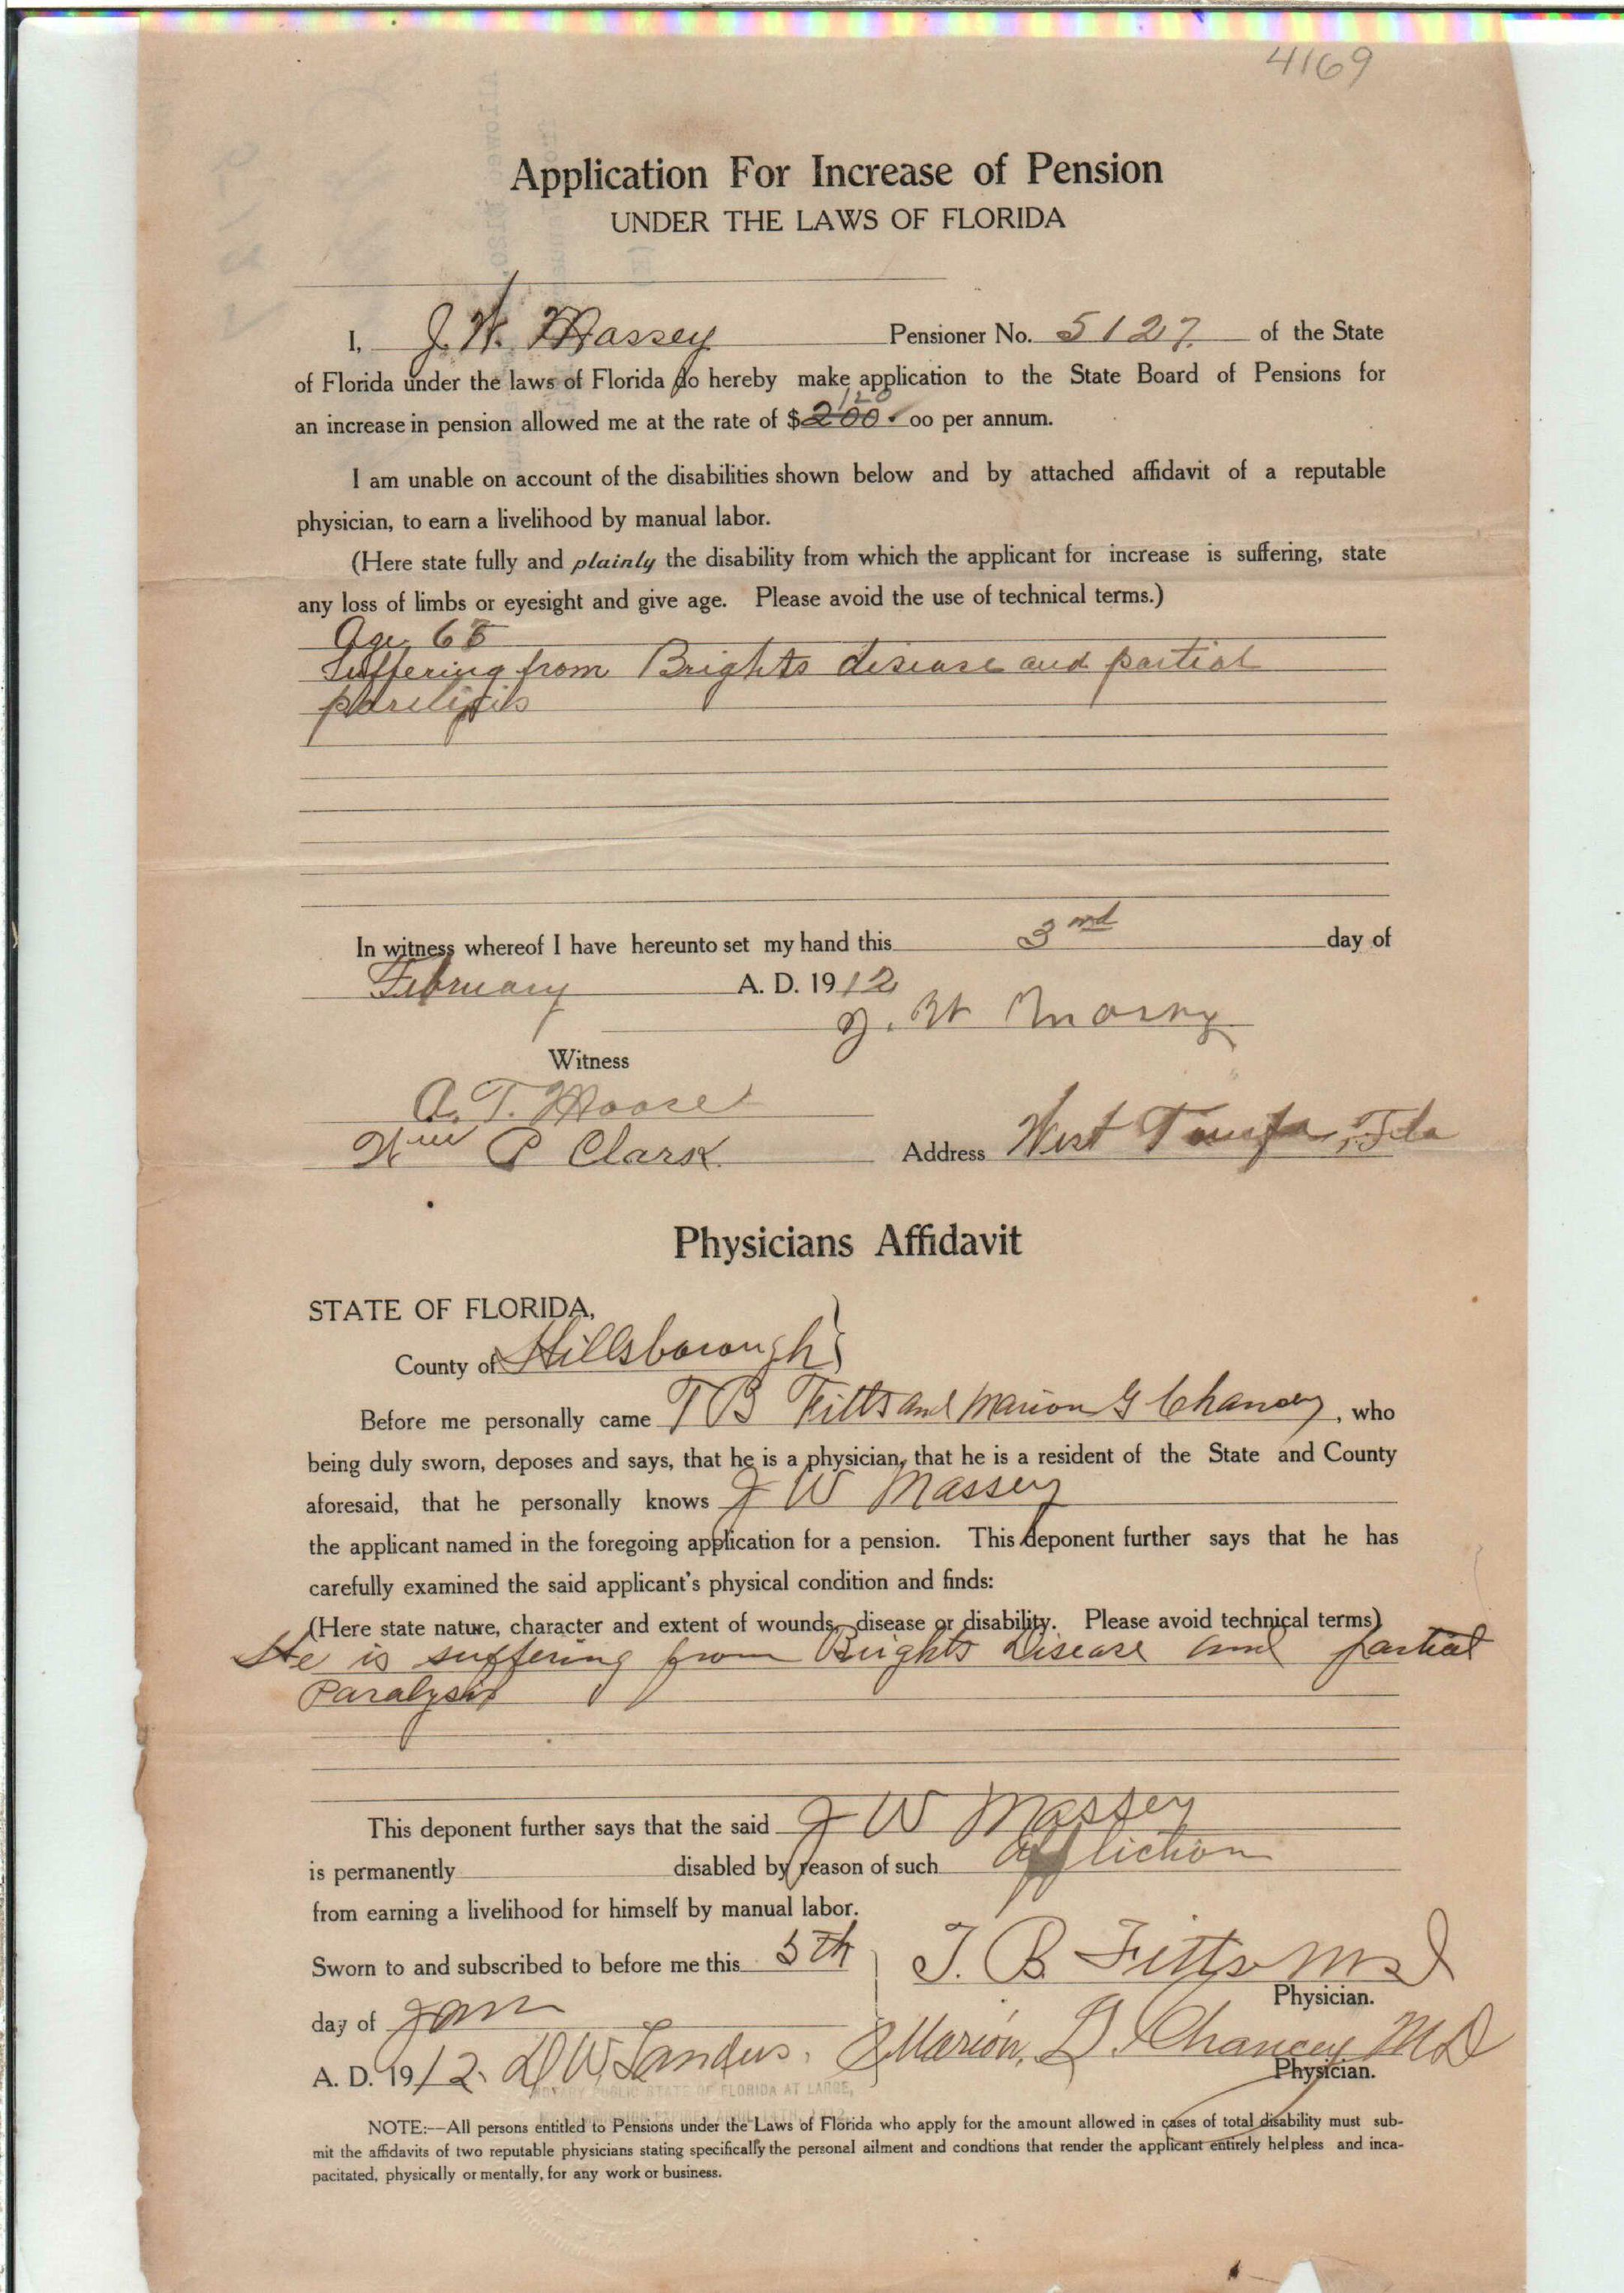 4169
Application For Increase of Pension
UNDER THE LAWS OF FLORIDA
I, J. W. Massey Pensioner No. 5127 of the State
of Florida under the laws of Florida do hereby make application to the State Board of Pensions for
120
an increase in pension allowed me at the rate of $200.00 per annum.
I am unable on account of the disabilities shown below and by attached affidavit of a reputable
physician, to earn a livelihood by manual labor.
(Here state fully and plainly the disability from which the applicant for increase is suffering, state
any loss of limbs or eyesight and give age. Please avoid the use of technical terms.)
Age
Suffering from Brights disease and partial
In witness whereof I have hereunto set my hand this 3rd day of
February A. D. 1912
J. W Massey
Witness
A. T. Moore
Wm P Clark Address West Tampa, Fla
Physicians Affidavit
STATE OF FLORIDA,
County of Hillsborough }
Before me personally came T B Fitts and Marion G Chancey, who
being duly sworn, deposes and says, that he is a physician, that he is a resident of the State and County
aforesaid, that he personally knows J W Massey
the applicant named in the foregoing application for a pension. This deponent further says that he has
carefully examined the said applicant's physical condition and finds:
(Here state nature, character and extent of wounds, disease or disability. Please avoid technical terms)
He is suffering from Brights Disease and partial
Paralysis
This deponent further says that the said J W Massey
is permanently disabled by reason of such affliction
from earning a livelihood for himself by manual labor.
Sworn to and subscribed to before me this 5th T. B. Fitts MD
Physician.
day of Jan
A. D. 1912. D W Sanders. Marion G. Chancey MD
Physician.
NOTARY PUBLIC STATE OF FLORIDA AT LARGE,
NOTE:—All persons entitled to Pensions under the Laws of Florida who apply for the amount allowed in cases of total disability must sub-
mit the affidavits of two reputable physicians stating specifically the personal ailment and condtions that render the applicant entirely helpless and inca-
pacitated, physically or mentally, for any work or business.